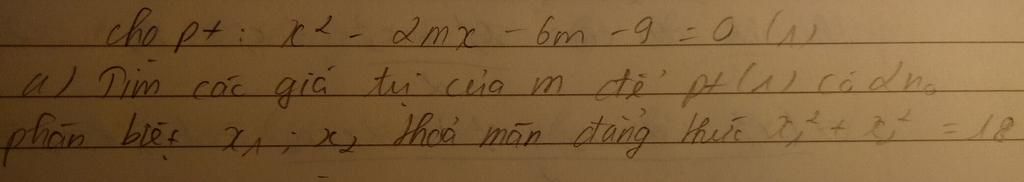 cho pt : x² - 2mx - 6m - 9 = 0 (1)
a) Tìm các giá trị của m để pt (1) có 2 no
phân biệt x₁ ; x₂ thoả mãn đẳng thức x₁² + x₂² = 18